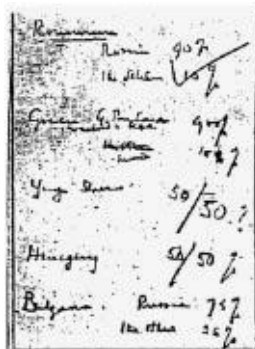 Roumania
Russia 90%
the others 10%
Greece G. Britain 90%
10%
Yugo
50/50%
Hungary 50/50%
Bulgaria Russia 75%
the others 25%